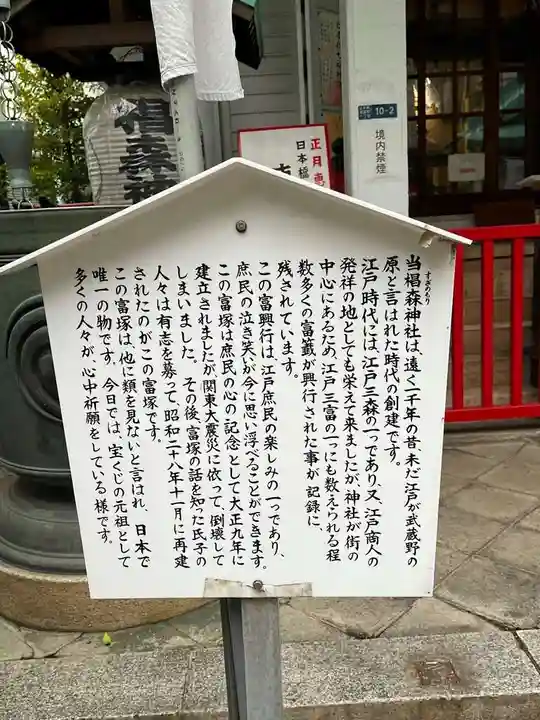 当椙森神社は、遠く一千年の昔、未だ江戸が武蔵野の
すぎのもり
原と言はれた時代の創建です。
江戸時代には、江戸三森の一つであり、又、江戸商人の
発祥の地としても栄えて来ましたが、神社が街の
中心にあるため、江戸三富の一つにも数えられる程
数多くの富籤が興行された事が記録に、
残されています。
この富興行は、江戸庶民の楽しみの一つであり、
庶民の泣き笑いが今に思い浮べることができます。
この富塚は庶民の心の記念として大正九年に
建立されましたが、関東大震災に依って、倒壊して
しまいました。その後、富塚の話を知った氏子の
人々は有志を募って、昭和二十八年十一月に再建
されたのがこの富塚です。
この富塚は、他に類を見ないと言はれ、日本で
唯一の物です。今日では、宝くじの元祖として
多くの人々が、心中祈願をしている様です。
10-2
境内禁煙
正月恵
日本橋
椙森神